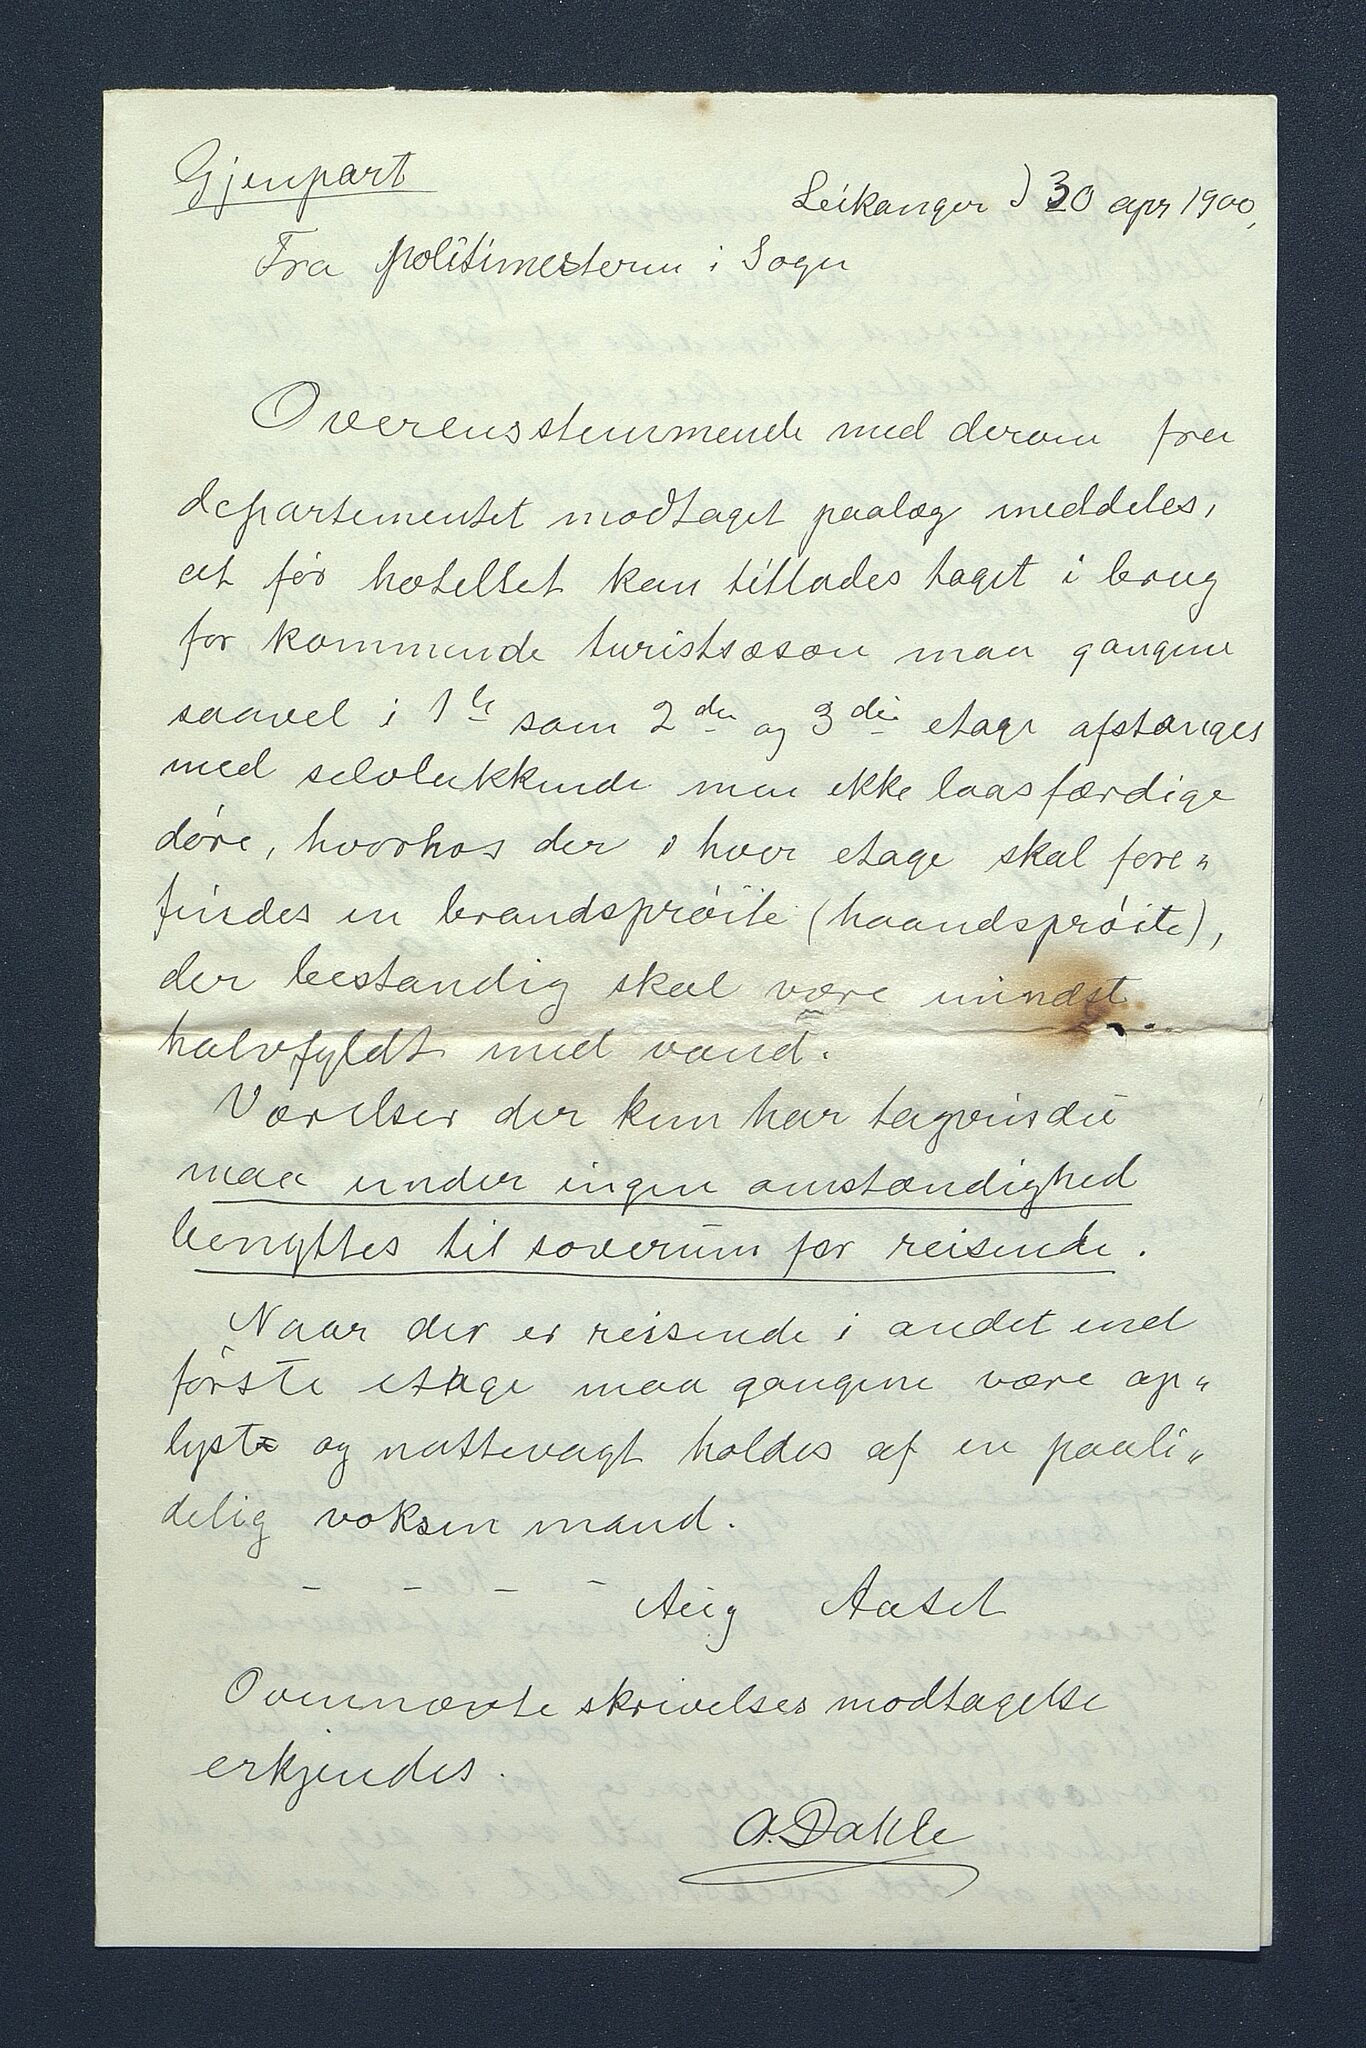 Gjenpart
Leikanger d 30 apr 1900,
Fra politimesteren i Sogn
Overensstemmende med derom fra
departementet modtaget paalæg meddeles,
at før hotellet kan tillades taget i brug
for kommende turistsæson maa gangene
saavel i 1ste som 2den og 3die etage afstænges
med selvlukkende men ikke laasfærdige
døre, hvorhos der i hver etage skal fore„
findes en brandsprøite (haandsprøite),
der bestandig skal være mindst
halvfyldt med vand.
Værelser der kun har tagvindu
maa under ingen omstændighed
benyttes til soverum for reisende.
Naar der er reisende i andet end
første etage maa gangene være op„
lyst og nattevagt holdes af en paali„
delig voksen mand.
– – – – Aug Aaset
Ovennævnte skrivelses modtagelse
erkjendes.
O. Dahle